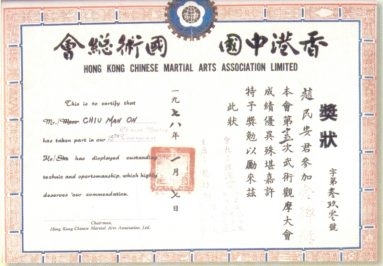 香港中國國術總會
HONG KONG CHINESE MARTIAL ARTS ASSOCIATION LIMITED
This is to certify that
Mr./Miss CHIU MAN ON
has taken part in our
He/She has displayed outstanding
technic and sportsmanship, which highly
deserves our commendation.
Chairman,
Hong Kong Chinese Martial Arts Association, Ltd.
獎狀
字第叁玖零號
趙民安君參加
本會第五次武術觀摩大會
成績優異殊堪嘉許
特予獎勉以勵來茲
此狀
一九七八年一月七日